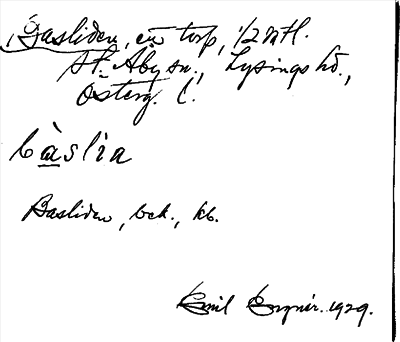 Basliden, en torp, 1/2 mtl.
St. Åby sn., Lysings hd.,
Österg. l.
bàslia
Basliden, bek., kb.
Emil 1929.